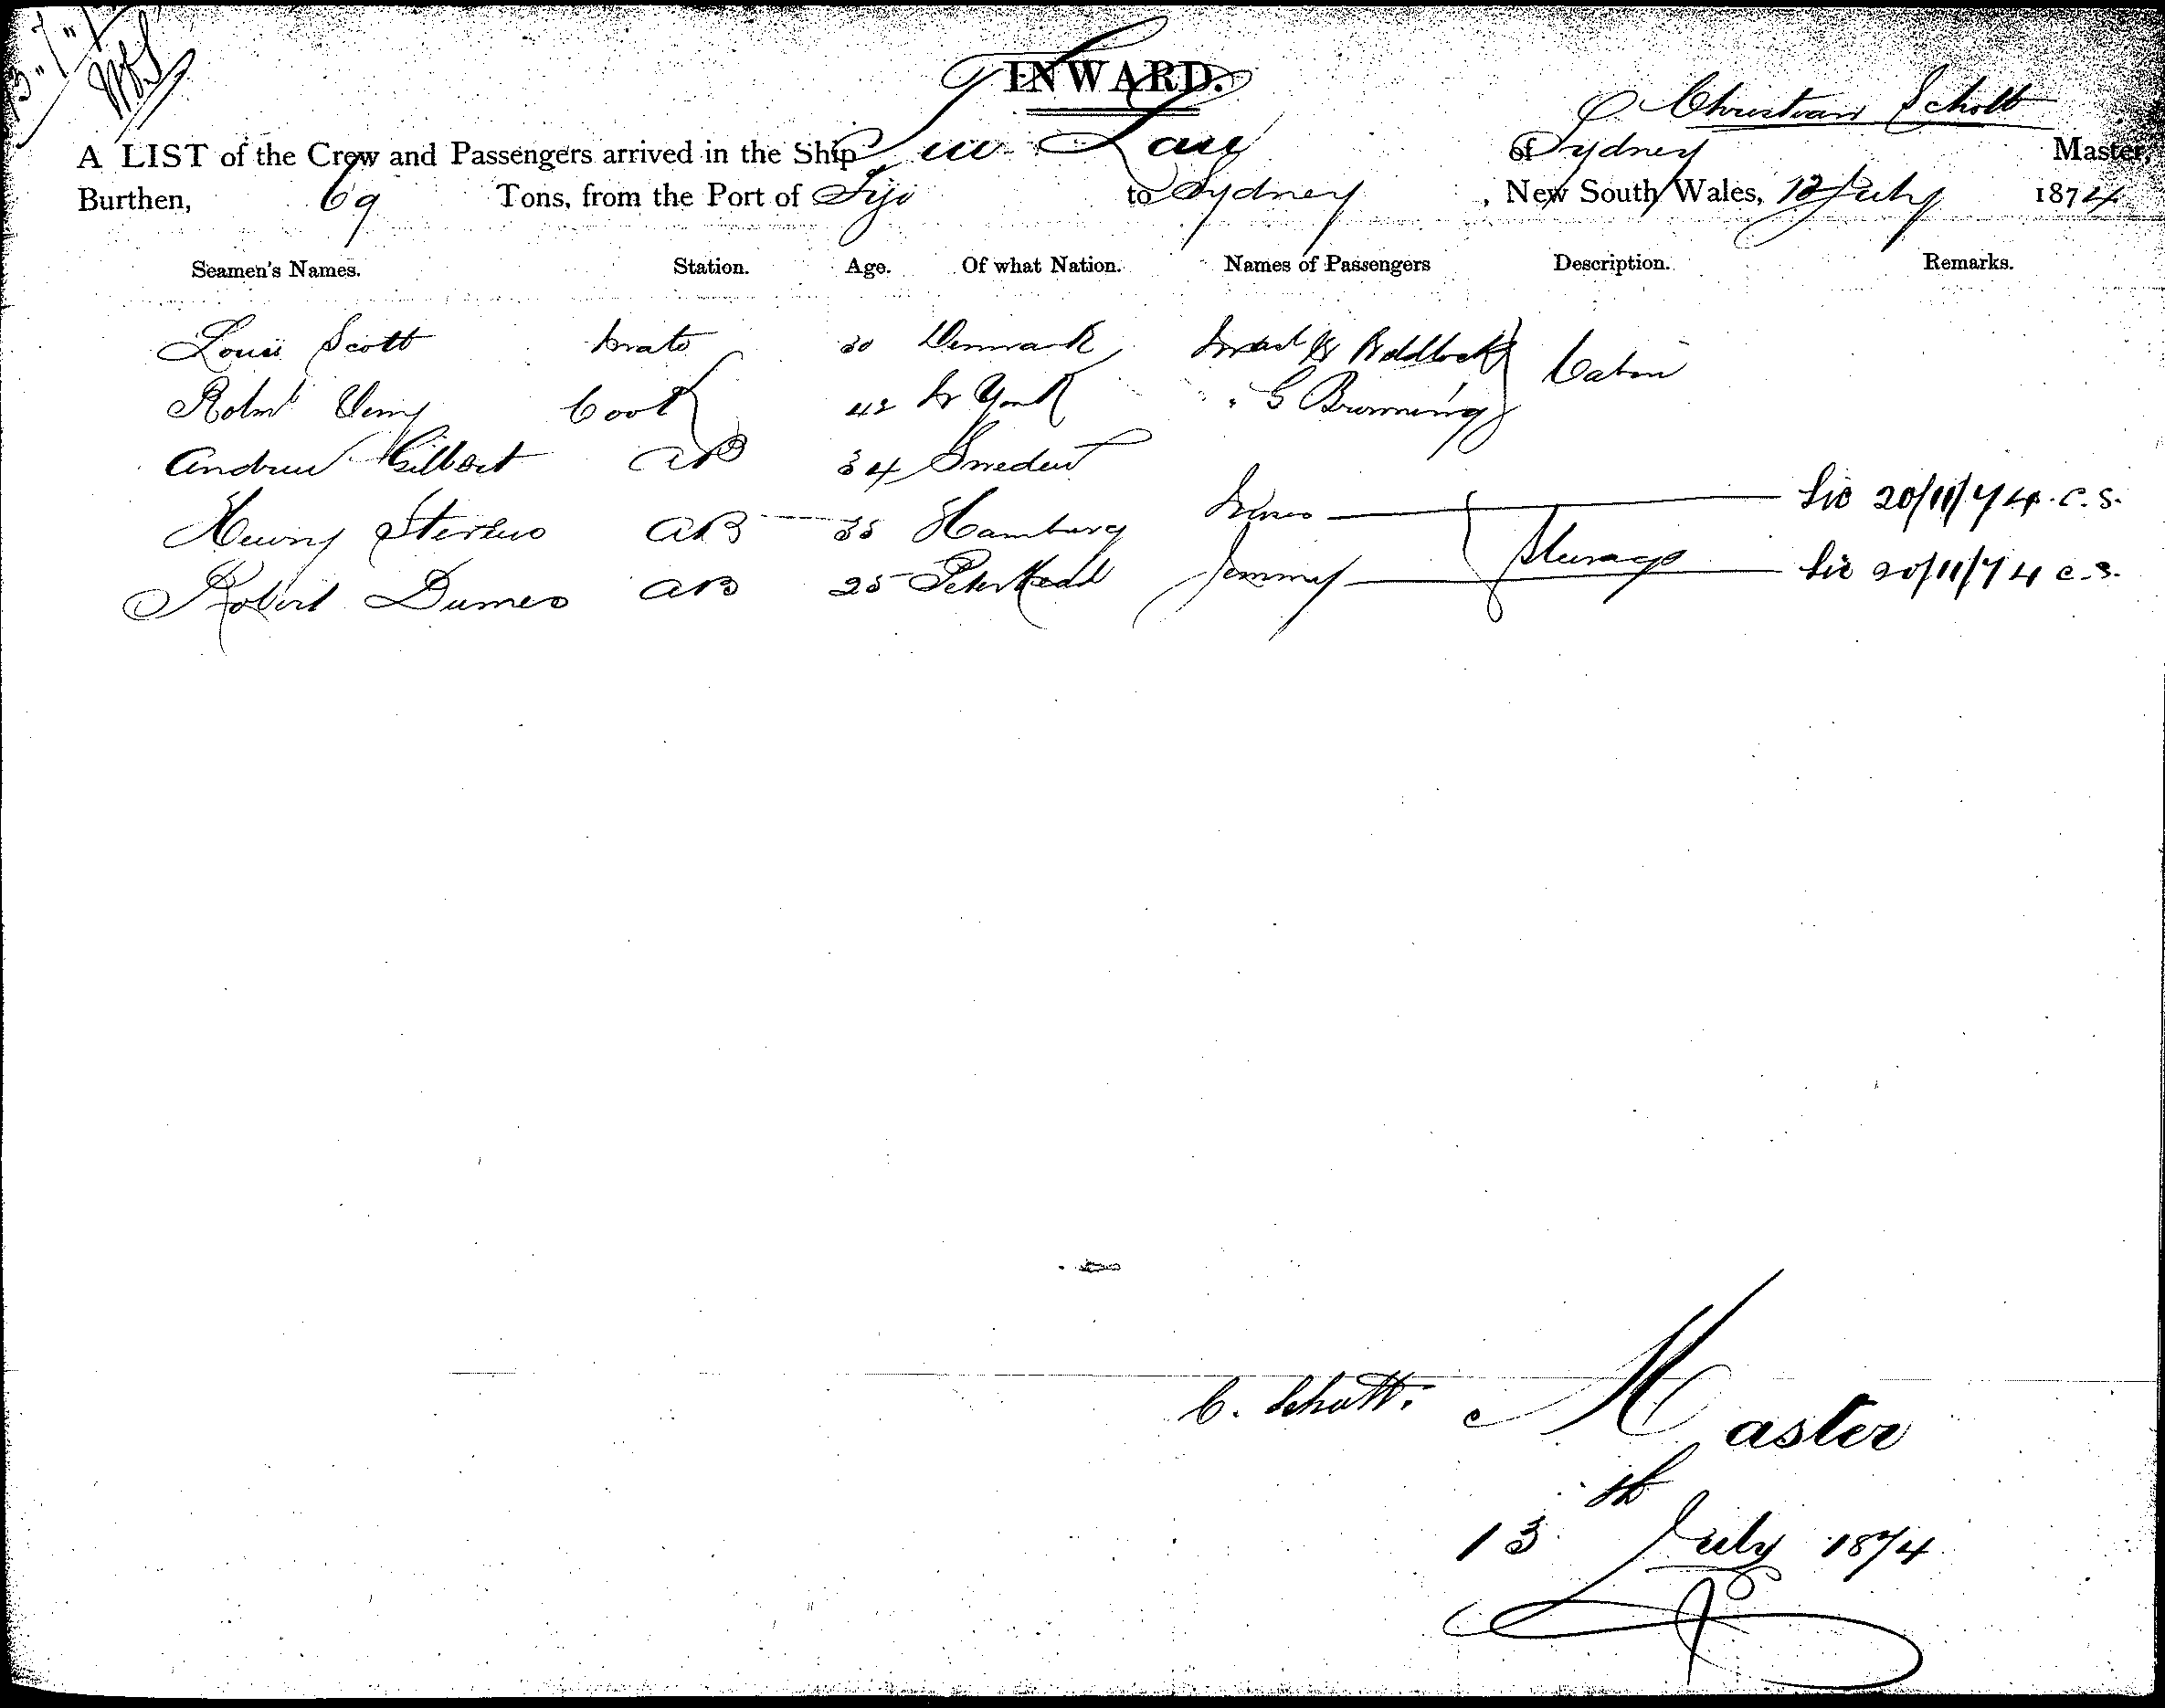 INWARD.
Christian Schott
A LIST of the Crew and Passengers arrived in the Ship Lau of Sydney Master,
Burthen, 69 Tons, from the Port of Fiji to Sydney, New South Wales, 12 July 1874
Seamen's Names. Station. Age. Of what Nation. Names of Passengers Description. Remarks.
Louis Scott Mate 30 Denmark Cabin
Robt Cook 42 N York " G Brunning
Andrew Gilbert AB 34 Sweden
Henry AB 35 Hamburg Lic 20/11/74. C. S.
Robert AB 25 Peterhead Jemmy Steerage Lic 20/11/74 C. S.
C. Schott. Master
13th July 1874